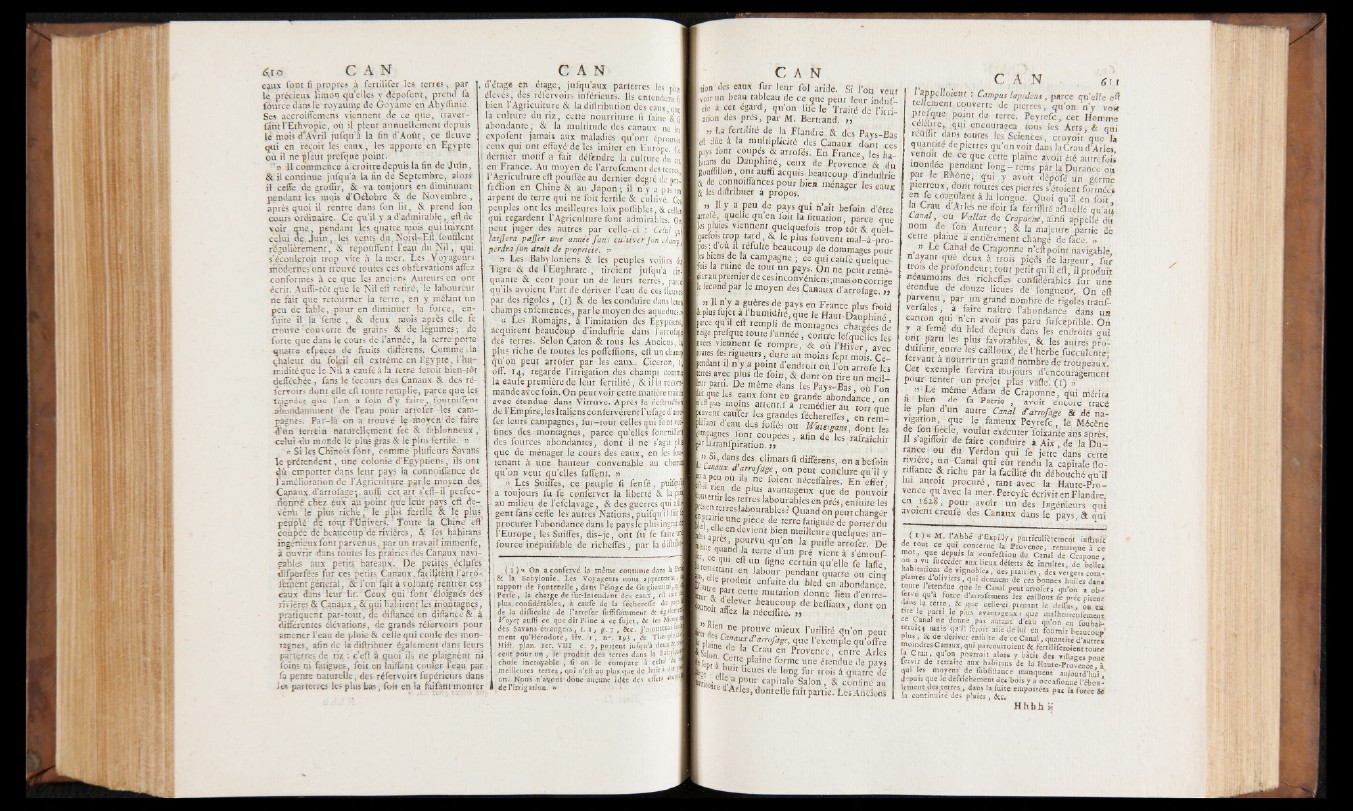 610 C A N
eaux sont si propres à fertiliser les terres, par
le précieux limon qu'elles y déposent, prend sa
source dans le royaume de Goyame en Abyssinie.
Ses accroissemens viennent de ce que, traver-
sant l'Ethyopie, où il pleut annuellement depuis
le mois d'Avril jusqu'à la fin d'Août, ce fleuve
qui en reçoit les eaux, les apporte en Egypte
où il ne pleut presque point.
» Il commence à croitre depuis la fin de Juin,
& il continue jusqu'à la fin de Septembre, alors
il cesse de grossir, & va toujours en diminuant
pendant les mois d'Octobre & de Novembre,
après quoi il rentre dans son lit, & prend son
cours ordinaire. Ce qu'il y a d'admirable, est de
voir que, pendant les quatre mois qui suivent
celui de Juin, les vents du Nord-Est soufflent
régulièrement, & repoussent l'eau du Nil, qui
s'écouleroit trop vite à la mer. Les Voyageurs
modernes ont trouvé toutes ces observations assez
conformes à ce que les anciens Auteurs en ont
écrit. Aussi-tôt que le Nil est retiré, le laboureur
ne fait que retourner la terre, en y mêlant un
peu de sable, pour en diminuer la force, en-
suite il la sème, & deux mois après elle se
trouve couverte de grains & de légumes; de
sorte que dans le cours de l'année, la terre porte
quatre espèces de fruits différens. Comme la
chaleur du soleil est extrême en Egypte, l'hu-
midité que le Nil a causé à la terre seroit bien-tôt
desséchée, sans le secours des Canaux & des ré-
servoirs dont elle est toute remplie, parce que les
saignées que l'on a soin d'y faire, fournissent
abondamment de l'eau pour arroser les cam-
pagnes. Par-là on a trouvé le moyen de faire
d'un terrein naturellement sec & sablonneux,
celui du monde le plus gras & le plus fertile. »
» Si les Chinois sont, comme plusieurs Savans
le prétendent, une colonie d'Egyptiens, ils ont
dû emporter dans leur pays la connoissance de
l'amélioration de l'Agriculture par le moyen des
Canaux d'arrosage; aussi cet art s'est-il perfec-
tionné chez eux au point que leur pays est de-
venu le plus riche, le plus fertile & le plus
peuplé de tout l'Univers. Toute la Chine est
coupée de beaucoup de rivières, & ses habitans
ingénieux sont parvenus, par un travail immense,
à ouvrir dans toutes les prairies des Canaux navi-
gables aux petits bateaux. De petites écluses
dispersées sur ces petits Canaux, facilitent l'arro-
sement général, & le fait à volonté rentrer ces
eaux dans leur lit. Ceux qui sont éloignés des
rivières & Canaux, & qui habitent les montagnes,
pratiquent par-tout, de distance en distance & à
différentes élévations, de grands réservoirs pour
amener l'eau de pluie & celle qui coule des mon-
tagnes, afin de la distribuer également dans leurs
parterres de riz: c'est à quoi ils ne plaignent ni
soins ni fatigues, soit en laissant couler l'eau par
sa pente naturelle, des réservoirs supérieurs dans
les parterres les plus bas, soit en la faisant monter
C A N
d'étage en étage, jusqu'aux parterres les plus
élevés, des réservoirs inférieurs. Ils entendent si
bien l'Agriculture & la distribution des eaux, que
la culture du riz, cette nourriture si saine & si
abondante; & la multitude des canaux ne les
exposent jamais aux maladies qu'ont éprouvé
ceux qui ont essayé de les imiter en Europe. Ce
dernier motif a fait défendre la culture du riz
en France. Au moyen de l'arrosement des terres,
l'Agriculture est poussée au dernier degré de per-
fection en Chine & au Japon; il n'y a pas un
arpent de terre qui ne soit fertile & cultivé. Ces
peuples ont les meilleures loix possibles, & celles
qui regardent l'Agriculture sont admirables. On
peut juger des autres par celle-ci: Celui qui
laissera passer une année sans cultiver son champ,
perdra son droit de propriété. »
» Les Babyloniens & les peuples voisins du
Tigre & de l'Euphrate, tiroient jusqu'à cin-
quante & cent pour un de leurs terres, parce
qu'ils avoient l'art de dériver l'eau de ces fleuves
par des rigoles, (1) & de les conduire dans leurs
champs ensemencés, par le moyen des aqueducs. »
« Les Romains, à l'imitation des Egyptiens,
acquirent beaucoup d'industrie dans l'arrosage
des terres. Selon Caton & tous les Anciens, la
plus riche de toutes les possessions, est un champ
qu'on peut arroser par les eaux. Ciceron, 1,
off. 14, regarde l'irrigation des champs comme
la cause première de leur fertilité, & il la recom-
mande avec soin. On peut voir cette matière traitée
avec étendue dans Vitruve. Après la destruction
de l'Empire, les Italiens conservèrent l'usage d'arro-
ser leurs campagnes, sur-tout celles qui sont voi-
sines des montagnes, parce qu'elles fournissent
des sources abondantes, dont il ne s'agit plus
que de ménager le cours des eaux, en les sou-
tenant à une hauteur convenable au chemin
qu'on veut qu'elles fassent. »
» Les Suisses, ce peuple si sensé, puisqu'il
a toujours su se conserver la liberté & la paix
au milieu de l'esclavage, & des guerres qui affli-
gent sans cesse les autres Nations, puisqu'il sait
procurer l'abondance dans le pays le plus ingrat de
l'Europe, les Suisses, dis-je, ont su se faire une
source inépuisable de richesses, par la distribu-
(1) » On a conservé la même coutume dans la Perse
& la Babylonie. Les Voyageurs nous apprennent, au
rapport de Fontenelle, dans l'éloge de Guglielmini, qu'en
Perse, la charge de sur-Intendant des eaux, est une des
plus considérables, à cause de la sécheresse du pays &
de la difficulté de l'arroser suffisamment & également.
Voyez aussi ce que dit Pline à ce sujet, & les
des Savans étrangers, t. 1, p. 7, &c.
ment qu'Hérodote, liv. 1, n°. 193, &
Hist. plan. Ier. VIII c. 7, portent jusqu'à deux
cent pour un, le produit des terres dans la Babylonie
chose incroyable, si on le compare à celui des
meilleures terres, qui n'est au plus que de huit à
un. Nous n'avons donc aucune idée des effets
de l'irrigation. »
C A N
tion des eaux sur leur sol aride. Si l'on veut
voir un beau tableau de ce que peut leur indus-
trie à cet égard, qu'on lise le Traité de l'irri-
gation des prés, par M. Bertrand. »
» La fertilité de la Flandre & des Pays-Bas
est dûe à la multiplicité des Canaux dont ces
pays sont coupés & arrosés. En France, les ha-
bitans du Dauphiné, ceux de Provence & du
Roussillon, ont aussi acquis beaucoup d'industrie
& de connoissances pour bien ménager les eaux
& les distribuer à propos.
» Il y a peu de pays qui n'ait besoin d'être
arrosé, quelle qu'en soit la situation, parce que
les pluies viennent quelquefois trop tôt & quel-
quefois trop tard, & le plus souvent mal-à-pro-
pos; d'où il résulte beaucoup de dommages pour
les biens de la campagne; ce qui cause quelque-
fois la ruine de tout un pays. On ne peut remé-
dier au premier de ces inconvéniens; mais on corrige
le second par le moyen des Canaux d'arrosage. »
» Il n'y a guères de pays en France plus froid
& plus sujet à l'humidité, que le Haut-Dauphiné,
parce qu'il est rempli de montagnes chargées de
neige presque toute l'année, contre lesquelles les
nuées viennent se rompre, & où l'Hiver, avec
toutes ses rigueurs, dure au moins sept mois. Ce-
pendant il n'y a point d'endroit où l'on arrose les
terres avec plus de soin, & dont on tire un meil-
leur parti. De même dans les Pays-Bas, où l'on
dit que les eaux sont en grande abondance, on
n'est pas moins attentif à remédier au tort que
peuvent causer les grandes sécheresses, en rem-
plissant d'eau des fossés ou Watergans, dont les
campagnes sont coupées, afin de les rafraîchir
par la transpiration. »
» Si, dans des climats si différens, on a besoin
de Canaux d'arrosage, on peut conclure qu'il y
en a peu où ils ne soient nécessaires. En effet,
est-il rien de plus avantageux que de pouvoir
convertir les terres labourables en prés, ensuite les
prés en terres labourables? Quand on peut changer
en prairie une pièce de terre fatiguée de porter du
bled, elle en devient bien meilleure quelques an-
nées après, pourvu qu'on la puisse arroser. De
même quand la terre d'un pré vient à s'émouf-
ser, ce qui est un signe certain qu'elle se lasse,
la remettant en labour pendant quatre ou cinq
ans, elle produit ensuite du bled en abondance.
D'autre part cette mutation donne lieu d'entre-
tenir & d'élever beaucoup de bestiaux, dont on
connoit assez la nécessité. »
» Rien ne prouve mieux l'utilité qu'on peut
tirer des Canaux d'arrosage, que l'exemple qu'offre
la plaine de la Crau en Provence, entre Arles
& Salon. Cette plaine forme une étendue de pays
de sept à huit lieues de long sur trois à quatre de
large; elle a pour capitale Salon, & confine au
territoire d'Arles, dont elle fait partie. Les Anciens
C A N 611
l'appelloient: Campus lapideus, parce qu'elle est
tellement couverte de pierres, qu'on n'y voit
presque point de terre. Peyresc, cet Homme
célèbre, qui encouragea tous les Arts, & qui
réussit dans toutes les Sciences, croyoit que la
quantité de pierres qu'on voit dans la Crau d'Arles,
venoit de ce que cette plaine avoit été autrefois
inondée pendant long-tems par la Durance ou
par le Rhône, qui y avoit déposé un germe
pierreux, dont toutes ces pierres s'étoient formées
en se coagulant à la longue. Quoi qu'il en soit,
la Crau d'Arles ne doit sa fertilité actuelle qu'au
Canal, ou Vallat de Craponne, ainsi appellé du
nom de son Auteur; & la majeure partie de
cette plaine a entièrement changé de face. »
» Le Canal de Craponne n'est point navigable,
n'ayant que deux à trois pieds de largeur, sur
trois de profondeur; tout petit qu'il est, il produit
néanmoins des richesses considérables sur une
étendue de douze lieues de longueur. On est
parvenu, par un grand nombre de rigoles trans-
versales, à faire naître l'abondance dans un
canton qui n'en avoit pas paru susceptible. On
y a semé du bled depuis dans les endroits qui
ont paru les plus favorables, & les autres pro-
duisent, entre les cailloux, de l'herbe succulente,
servant à nourrir un grand nombre de troupeaux.
Cet exemple servira toujours d'encouragement
pour tenter un projet plus vaste. (1) »
» Le même Adam de Craponne, qui mérita
si bien de sa Patrie, avoit encore tracé
le plan d'un autre Canal d'arrosage & de na-
vigation, que le fameux Peyresc, le Mécène
de son siècle, voulut exécuter soixante ans après.
Il s'agissoit de faire conduire à Aix, de la Du-
rance ou du Verdon qui se jette dans cette
rivière, un Canal qui eût rendu la capitale flo-
rissante & riche par la facilité du débouché qu'il
lui auroit procuré, tant avec la Haute-Pro-
vence qu'avec la mer. Peresyc écrivit en Flandre,
en 1628, pour avoir un des Ingénieurs qui
avoient creusé des Canaux dans le pays, & qui
(1) » M. l'Abbé d'Expilly, particulièrement instruit
de tout ce qui concerne la Provence, remarque à ce
mot, que depuis la confection du Canal de Crapone,
on a vu succéder aux lieux déserts & incultes, de belles
habitations de vignobles, des prairies, des vergers com-
plantés d'oliviers, qui donnent de ces bonnes huiles dans
toute l'étendue que le Canal peut arroser; qu'on a ob-
servé qu'à force d'arrosemens les cailloux se précipitent
dans la terre, & que celle-ci prenant le dessus, on en
tire le parti le plus avantageux: que malheureusement
ce Canal ne donne pas autant d'eau qu'on en souhai-
teroit; mais qu'il seroit aisé de lui en fournir beaucoup
plus, & de dériver ensuite de ce Canal, quantité d'autres
moindres Canaux, qui parcourroient & fertiliseroient toute
la Crau, qu'on pourroit alors y bâtir des villages pour
servir de retraite aux habitans de la Haute-Provence, à
qui les moyens de subsistance manquent aujourd'hui,
depuis que le défrichement des bois y a occasionné l'ébou-
lement des terres, dans la suite emportées par la force &
la continuité des pluies, &c.
Hhhh ij